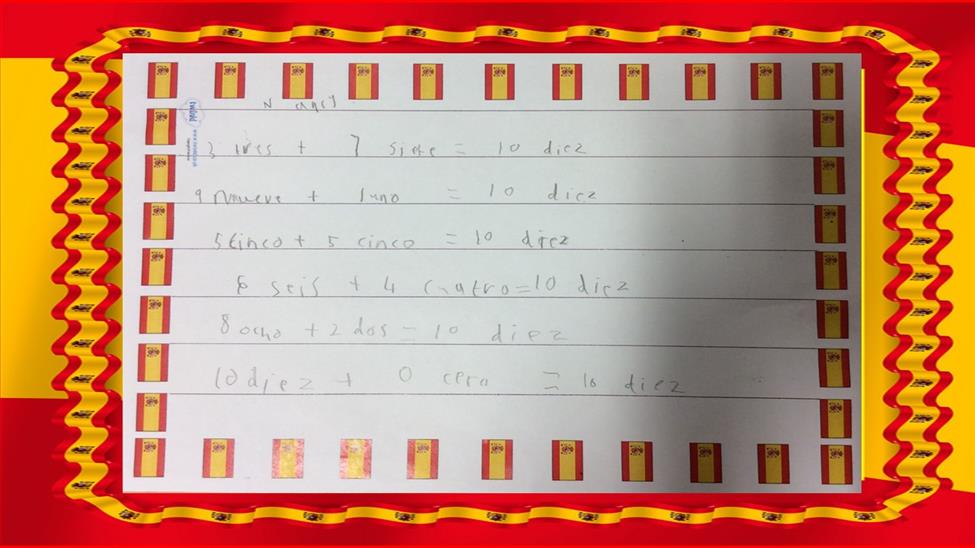 3 tres + 7 siete = 10 diez
9 nnueve + 1 uno = 10 diez
5 cinco + 5 cinco = 10 diez
6 seis + 4 cuatro = 10 diez
8 ocho + 2 dos = 10 diez
10 diez + 0 cero = 10 diez